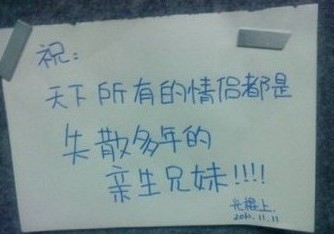 祝：
天下所有的情侣都是
失散多年的
亲生兄妹!!!!
光棍上.
2011.11.11